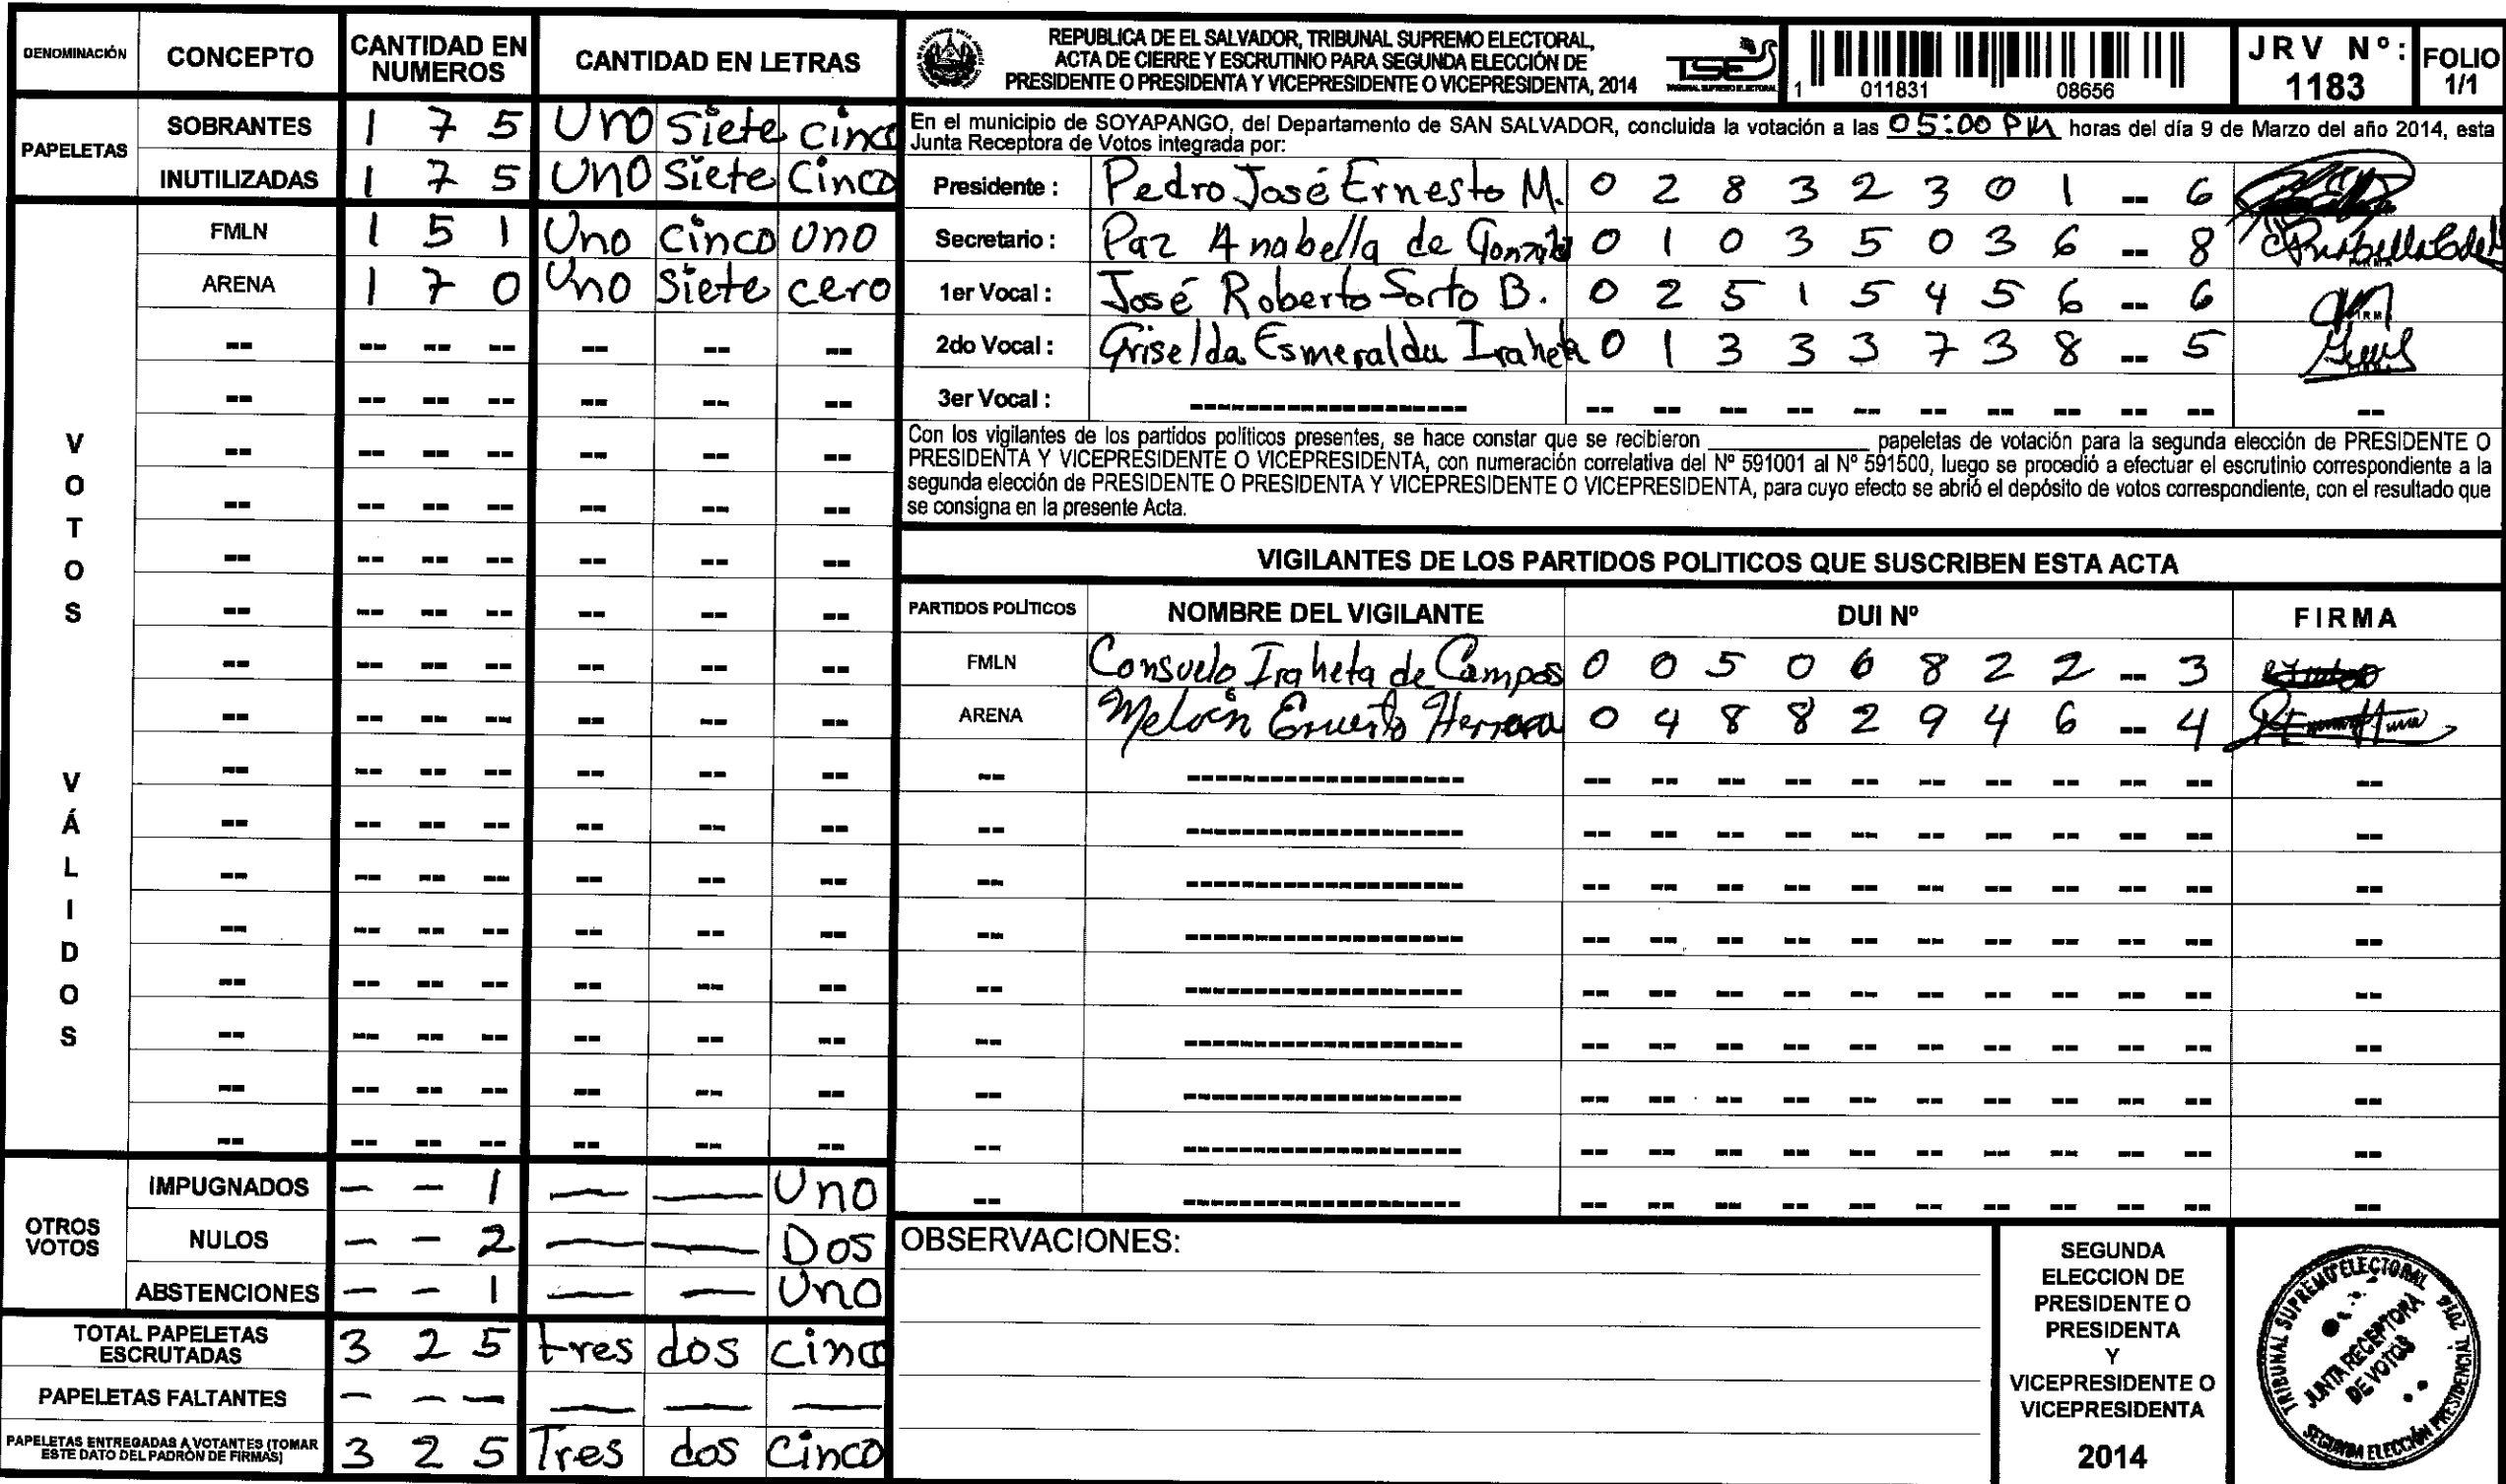 DENOMINACIÓN CONCEPTO CANTIDAD EN NUMEROS CANTIDAD EN LETRAS
PAPELETAS
SOBRANTES 1 7 5 Uno Siete cinco
INUTILIZADAS 1 7 5 Uno Siete Cinco
VOTOS VÁLIDOS
FMLN 1 5 1 Uno cinco uno
ARENA 1 7 0 Uno Siete cero
OTROS VOTOS
IMPUGNADOS — — 1 — — Uno
NULOS — — 2 — — Dos
ABSTENCIONES — — 1 — — Uno
TOTAL PAPELETAS ESCRUTADAS 3 2 5 tres dos cinco
PAPELETAS FALTANTES — — — — — —
PAPELETAS ENTREGADAS A VOTANTES (TOMAR ESTE DATO DEL PADRÓN DE FIRMAS) 3 2 5 Tres dos Cinco
REPUBLICA DE EL SALVADOR, TRIBUNAL SUPREMO ELECTORAL,
ACTA DE CIERRE Y ESCRUTINIO PARA SEGUNDA ELECCIÓN DE
PRESIDENTE O PRESIDENTA Y VICEPRESIDENTE O VICEPRESIDENTA, 2014
TSE
1 011831 08656
JRV Nº: 1183
FOLIO 1/1
En el municipio de SOYAPANGO, del Departamento de SAN SALVADOR, concluida la votación a las 05:00 PM horas del día 9 de Marzo del año 2014, esta
Junta Receptora de Votos integrada por:
Presidente : Pedro José Ernesto M. 0 2 8 3 2 3 0 1 -- 6
Secretario : Paz Anabella de 0 1 0 3 5 0 3 6 -- 8
1er Vocal : José Roberto Sorto B. 0 2 5 1 5 4 5 6 -- 6
2do Vocal : Griselda Esmeralda Iraheta 0 1 3 3 3 7 3 8 -- 5
3er Vocal :
Con los vigilantes de los partidos políticos presentes, se hace constar que se recibieron ________ papeletas de votación para la segunda elección de PRESIDENTE O
PRESIDENTA Y VICEPRESIDENTE O VICEPRESIDENTA, con numeración correlativa del Nº 591001 al Nº 591500, luego se procedió a efectuar el escrutinio correspondiente a la
segunda elección de PRESIDENTE O PRESIDENTA Y VICEPRESIDENTE O VICEPRESIDENTA, para cuyo efecto se abrió el depósito de votos correspondiente, con el resultado que
se consigna en la presente Acta.
VIGILANTES DE LOS PARTIDOS POLITICOS QUE SUSCRIBEN ESTA ACTA
PARTIDOS POLÍTICOS NOMBRE DEL VIGILANTE DUI Nº FIRMA
FMLN Consuelo Iraheta de Campos 0 0 5 0 6 8 2 2 -- 3
ARENA Melvin Ernesto Herrera 0 4 8 8 2 9 4 6 -- 4
OBSERVACIONES:
SEGUNDA
ELECCION DE
PRESIDENTE O
PRESIDENTA
Y
VICEPRESIDENTE O
VICEPRESIDENTA
2014
TRIBUNAL SUPREMO ELECTORAL
JUNTA RECEPTORA
DE VOTOS
SEGUNDA ELECCIÓN PRESIDENCIAL 2014